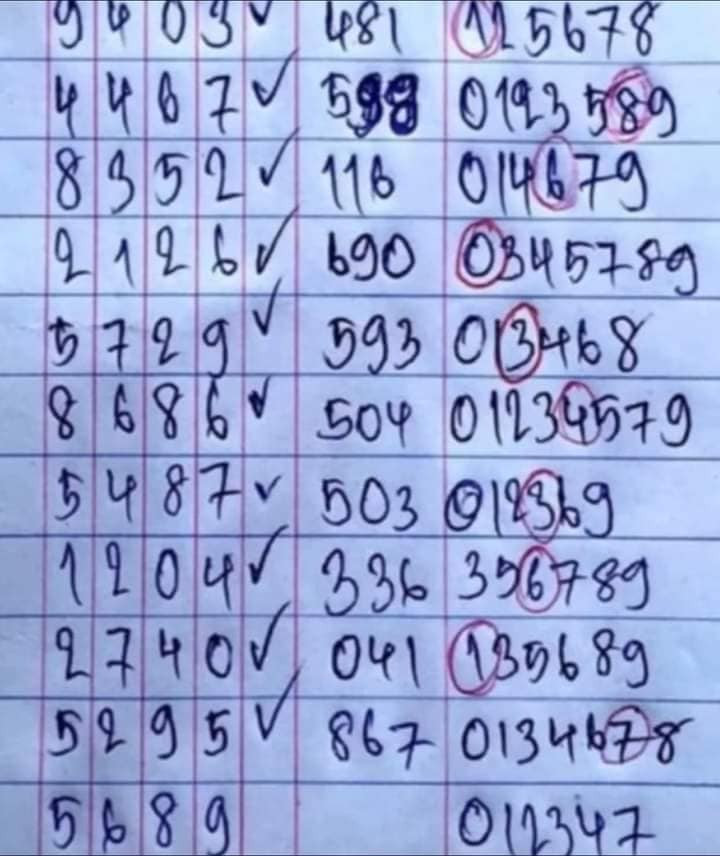 9 4 0 3 ✓ 481 125678
4 4 6 7 ✓ 0123589
8 3 5 2 ✓ 116 014679
2 1 2 6 ✓ 690 0345789
5 7 2 9 ✓ 593 013468
8 6 8 6 ✓ 504 01234579
5 4 8 7 ✓ 503 012369
1 2 0 4 ✓ 336 356789
2 7 4 0 ✓ 041 135689
5 2 9 5 ✓ 867 0134678
5 6 8 9 012347